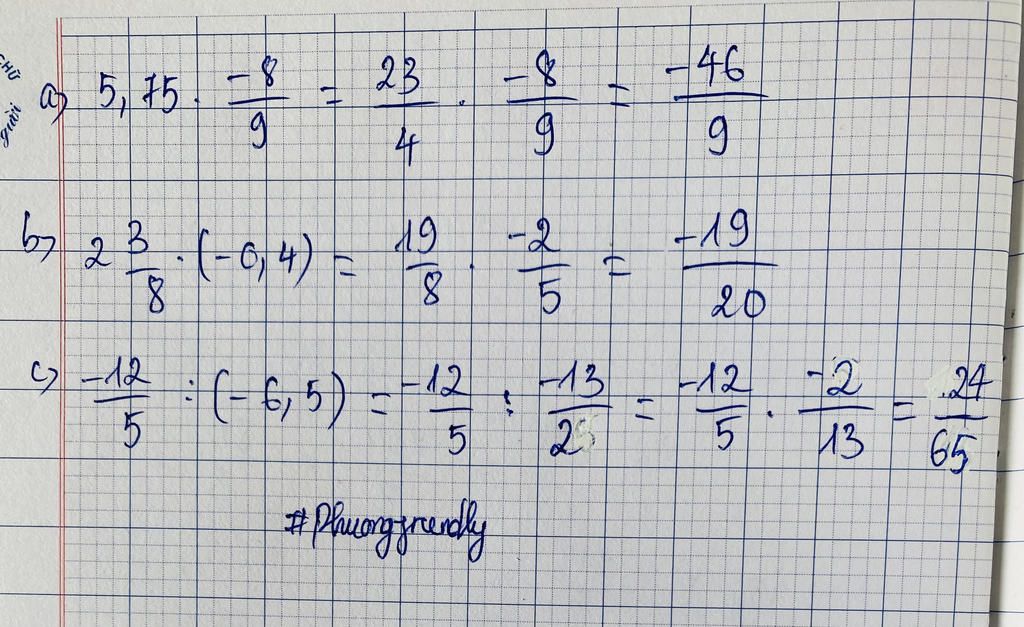 a) 5,75 . -8/9 = 23/4 . -8/9 = -46/9
b) 2 3/8 . (-0,4) = 19/8 . -2/5 = -19/20
c) -12/5 : (-6,5) = -12/5 : -13/2 = -12/5 . -2/13 = 24/65
#Phuongfriendly